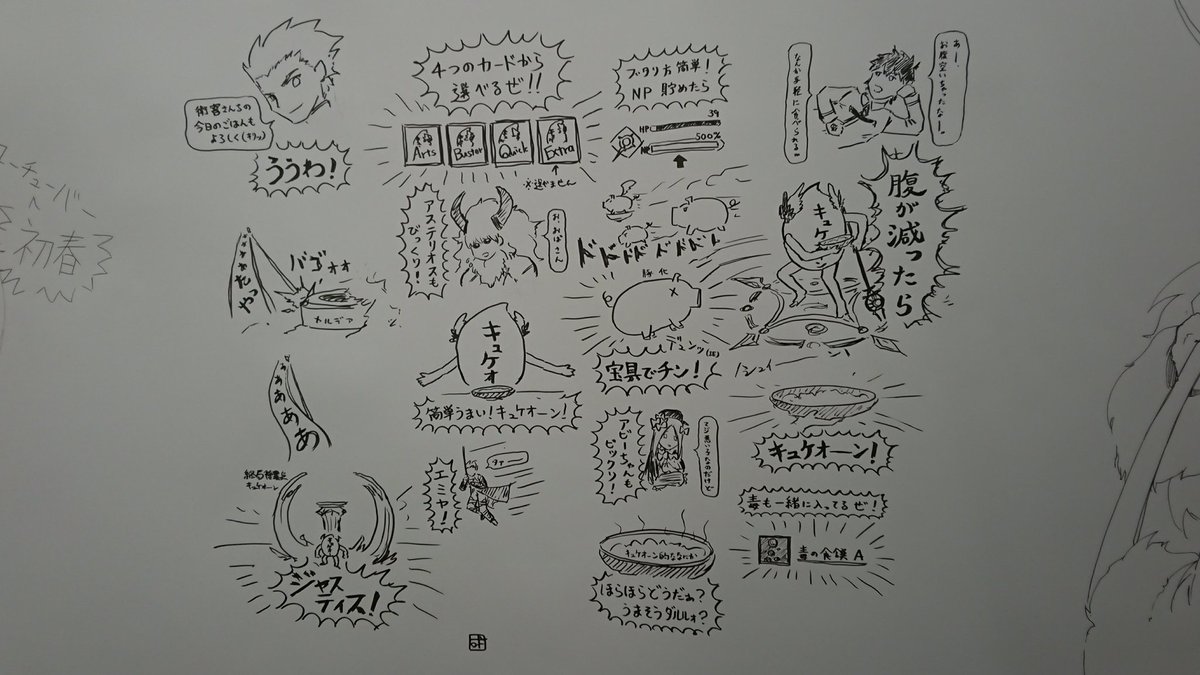 あー、
お腹空いちゃったなー。
なんか手軽に食べられるの
腹が減ったら
キュケオ
ノシュイ
キュケオーン!
毒も一緒に入ってるぜ!
毒の食饌 A
ブタリ方簡単!
NP 貯めたら
39
HP
500%
NP
ドドドドドドドド
豚化
デュンッ
宝具でチン!
アビーちゃんも
ビックリ!
キュケオーン的ななにか
ほらほらどうだぁ?
うまそうダルルォ?
4つのカードから
選べるぜ!!
Arts
Buster
Quick
Extra
※選べません
アステリオスも
びっくり!
おおばさん
キュケオ
簡単うまい!キュケオーン!
エミヤ!
術客さんちの
今日のごはんも
よろしく(キリッ)
ううわ!
バゴォオ
やったぁぁぁ
カルデア
ぁぁああああ
キュケオーン
ジャス
ティス!
ューチューバー
初春